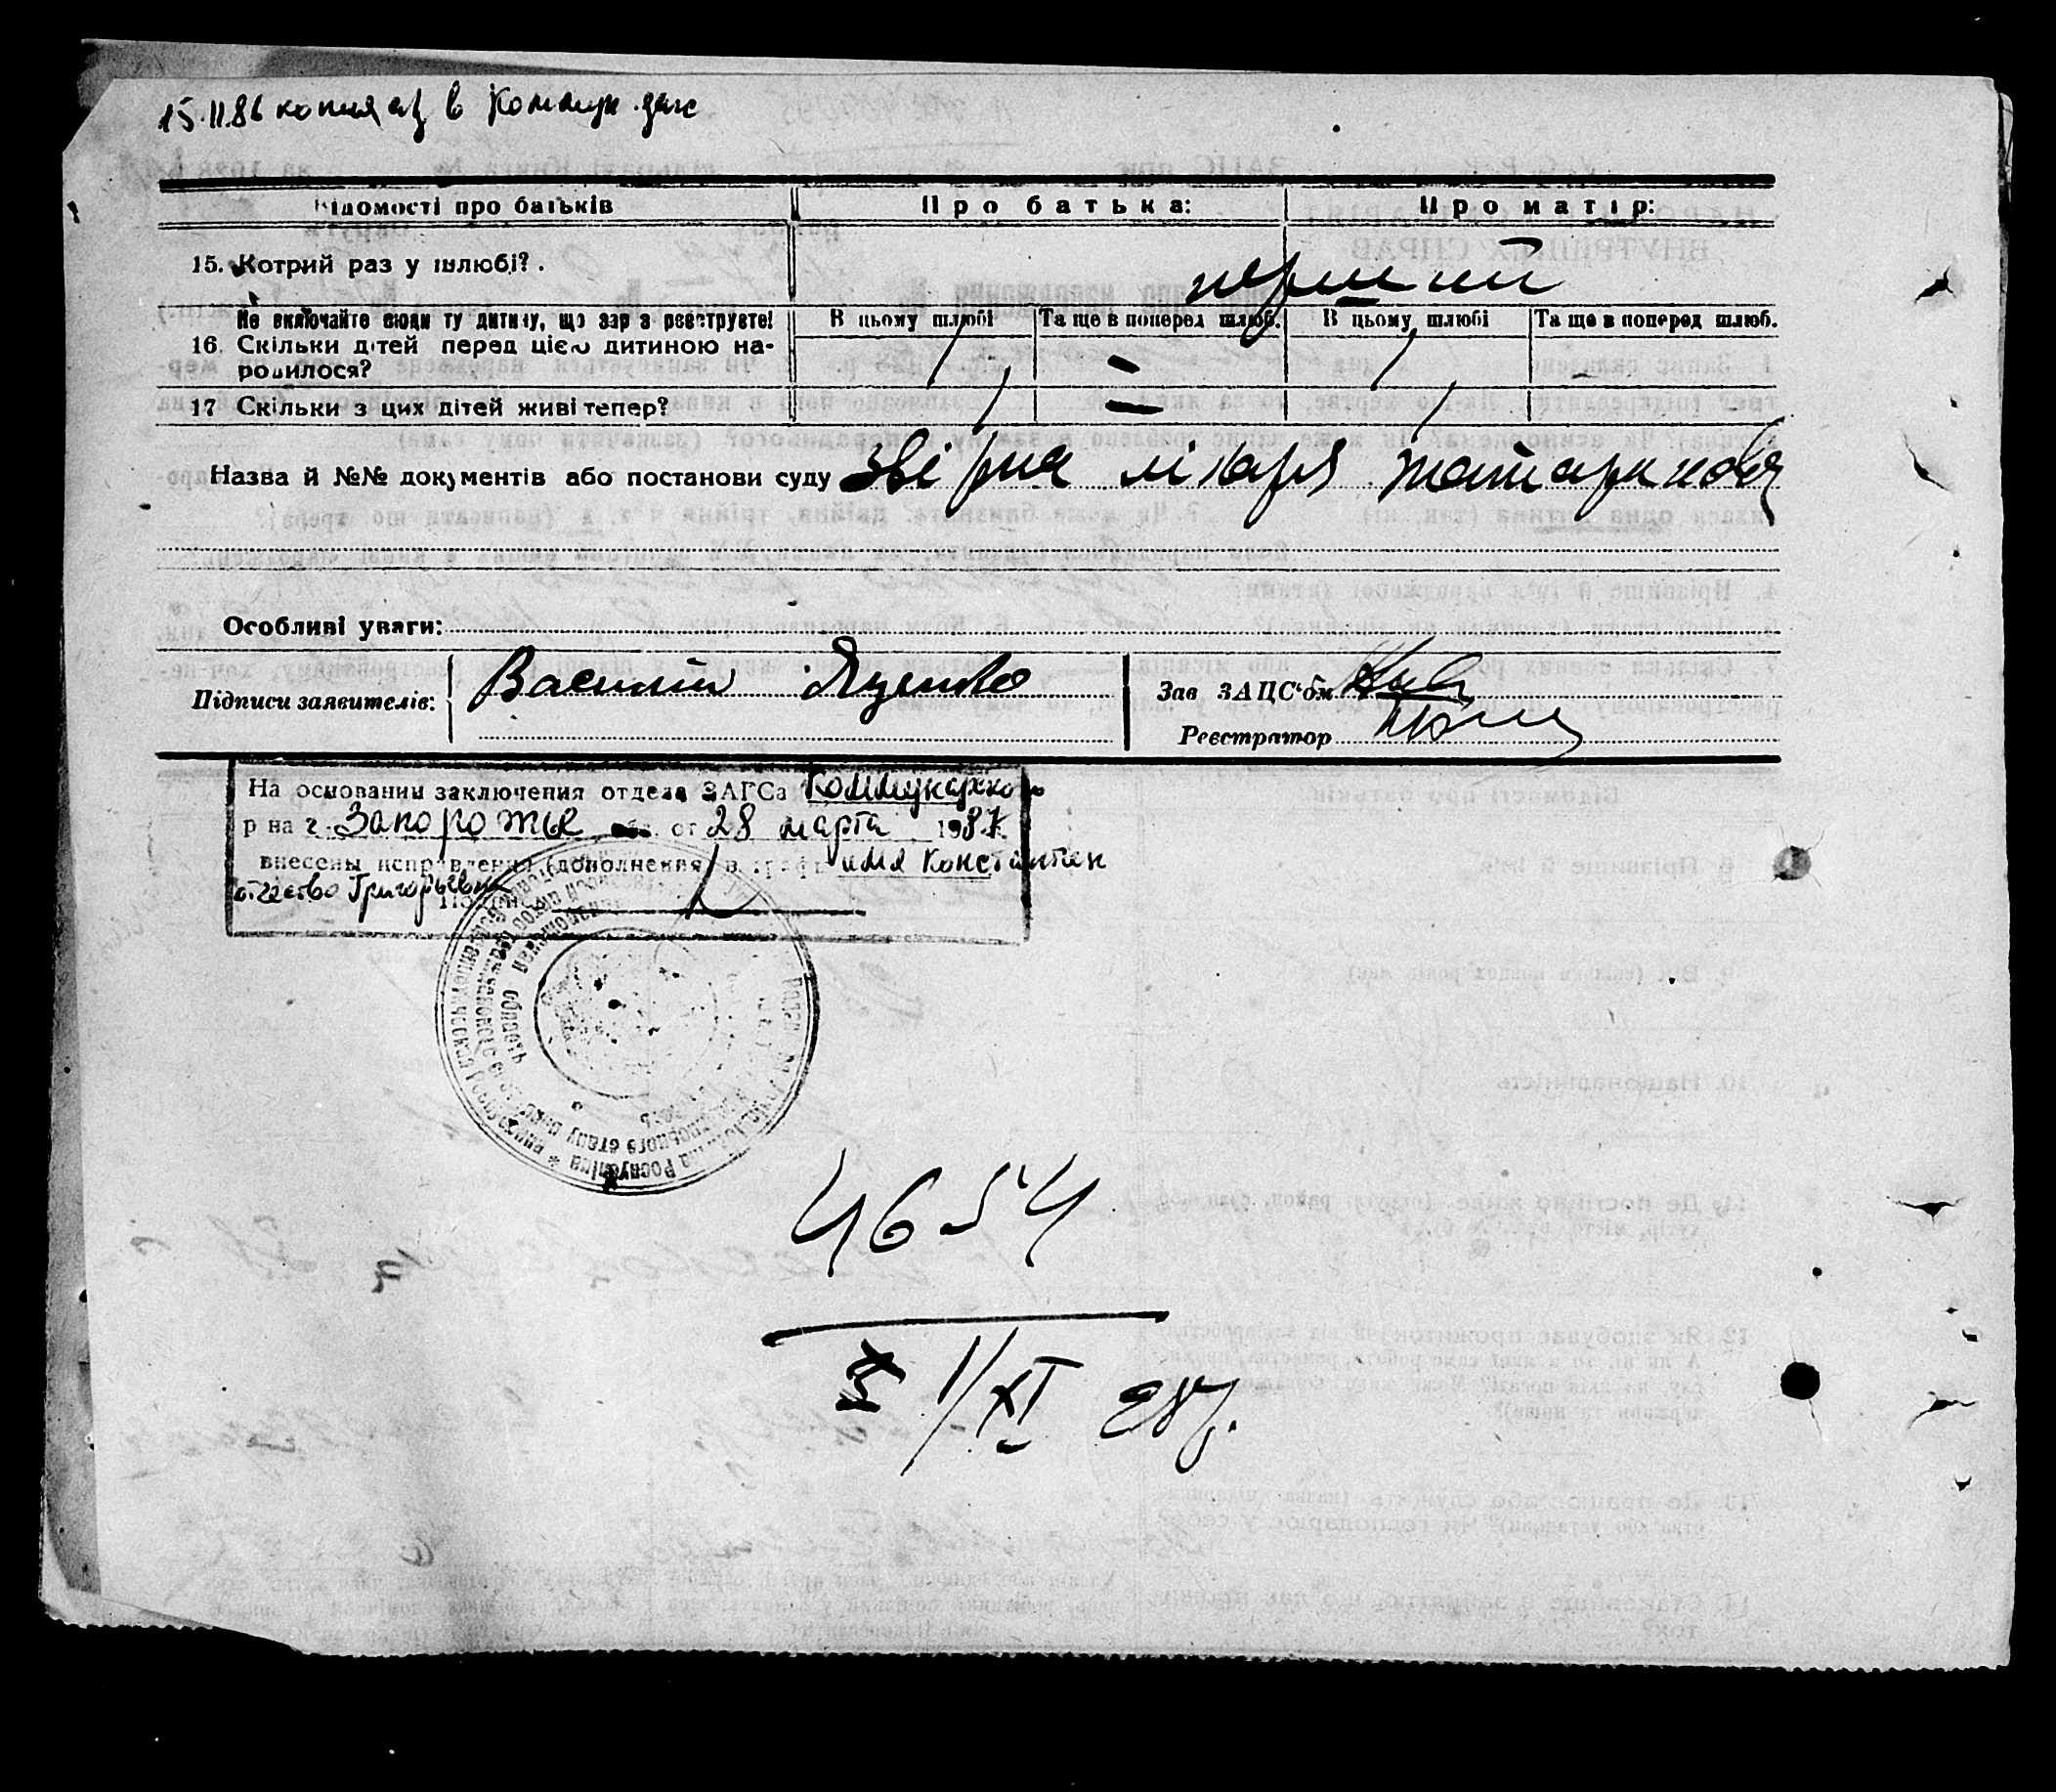 15.II.86 копия аз в Коммун. загс
Відомості про батьків Про батька: Про матір:
15. Котрий раз у шлюбі? перший
Не включайте сюди ту дитину, що зараз реєструєте! В цьому шлюбі Та ще в поперед шлюб. В цьому шлюбі Та ще в поперед шлюб.
16. Скільки дітей перед цією дитиною на- 1 – 1 –
родилося?
17 Скільки з цих дітей живі тепер? 1 – 1 -
Назва й №№ документів або постанови суду лікаря
Особливі уваги:
Підписи заявителів: Василий Яценко Зав ЗАЦС'ом
Реєстратор
На основании заключения отдела ЗАГСа Коммунарского
р на г. Запорожье от 28 марта 1987
внесены исправления (дополнения) в графы имя Константин
отчество Григорьевна
4654
1/XI 28 р.